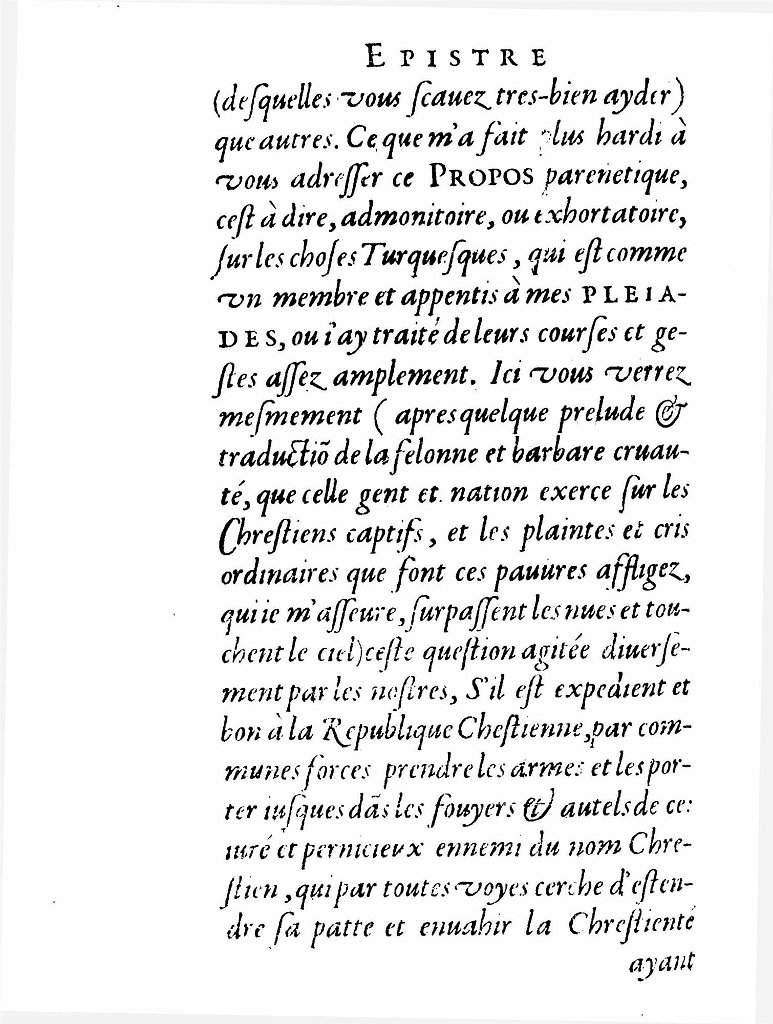 EPISTRE
(deſquelles vous ſcauez tres-bien ayder)
que autres. Ce que m'a fait plus hardi à
vous adreſſer ce PROPOS parenetique,
ceſt à dire, admonitoire, ou exhortatoire,
ſur les choſes Turqueſques, qui eſt comme
vn membre et appentis à mes PLEIA-
DES, ou i'ay traité de leurs courſes et ge-
ſtes aſſez amplement. Ici vous verrez
meſmement ( apres quelque prelude &
traductiō de la felonne et barbare cruau-
té, que celle gent et nation exerce ſur les
Chreſtiens captifs, et les plaintes et cris
ordinaires que font ces pauures affligez,
qui ie m'aſſeure, ſurpaſſent les nues et tou-
chent le ciel) ceſte queſtion agitée diuerſe-
ment par les noſtres, S'il eſt expedient et
bon à la Republique Cheſtienne, par com-
munes forces prendre les armes et les por-
ter iuſques dās les fouyers & autels de ce:
iuré et pernicieux ennemi du nom Chre-
ſtien, qui par toutes voyes cerche d'eſten-
dre ſa patte et enuahir la Chreſtienté
ayant